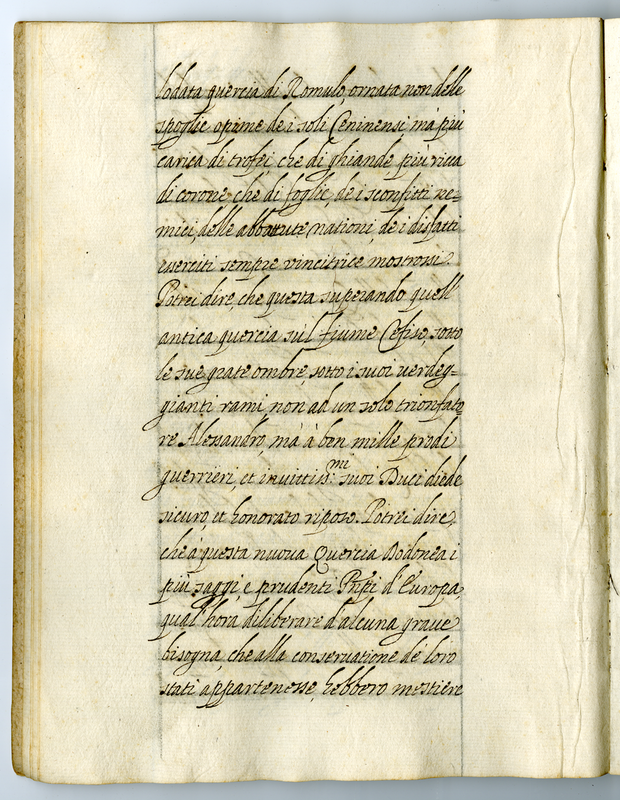 lodata quercia di Romulo, ornata non delle
spoglie opime de i soli Ceninensi, mà più
carica di trofei, che di ghiande, più ricca
di corone, che di foglie, de i sconfitti ne=
mici, delle abbattute nationi, de i disfatti
eserciti sempre vincitrice mostrossi.
Potrei dire, che questa superando quell'
antica quercia sù'l fiume Cefiso, sotto
le sue grate ombre, sotto i suoi verdeg=
gianti rami, non ad un solo trionfato=
re Alessandro, mà à ben mille prodi
guerrieri, et invittiss:mi suoi Duci diede
sicuro, et honorato riposo. Potrei dire,
che à questa nuova Quercia Dodonea i
più saggi, e prudenti Prpi d'Europa
qual'hora diliberare d'alcuna grave
bisogna, che alla conservatione de' loro
stati appartenesse, hebbero mestiere